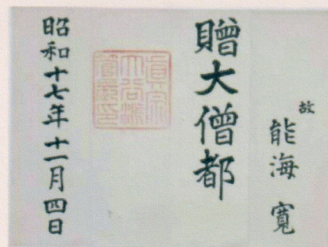 故
能海寛
贈大僧都
昭和十七年十一月四日